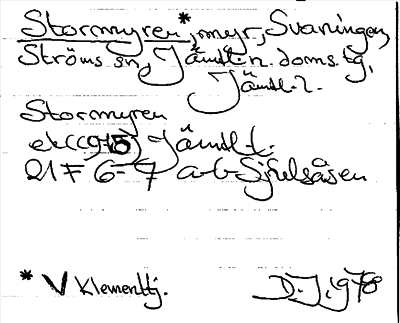 Stormyren*, myr, Svaningen,
Ströms sn, Jämtl. n. doms.tg,
Jämtl. l.
Stormyren
ek (1915) Jämtl. l.
21 F 6-7 a-b Sjulsåsen
* V Klementtj. D.J. 1978